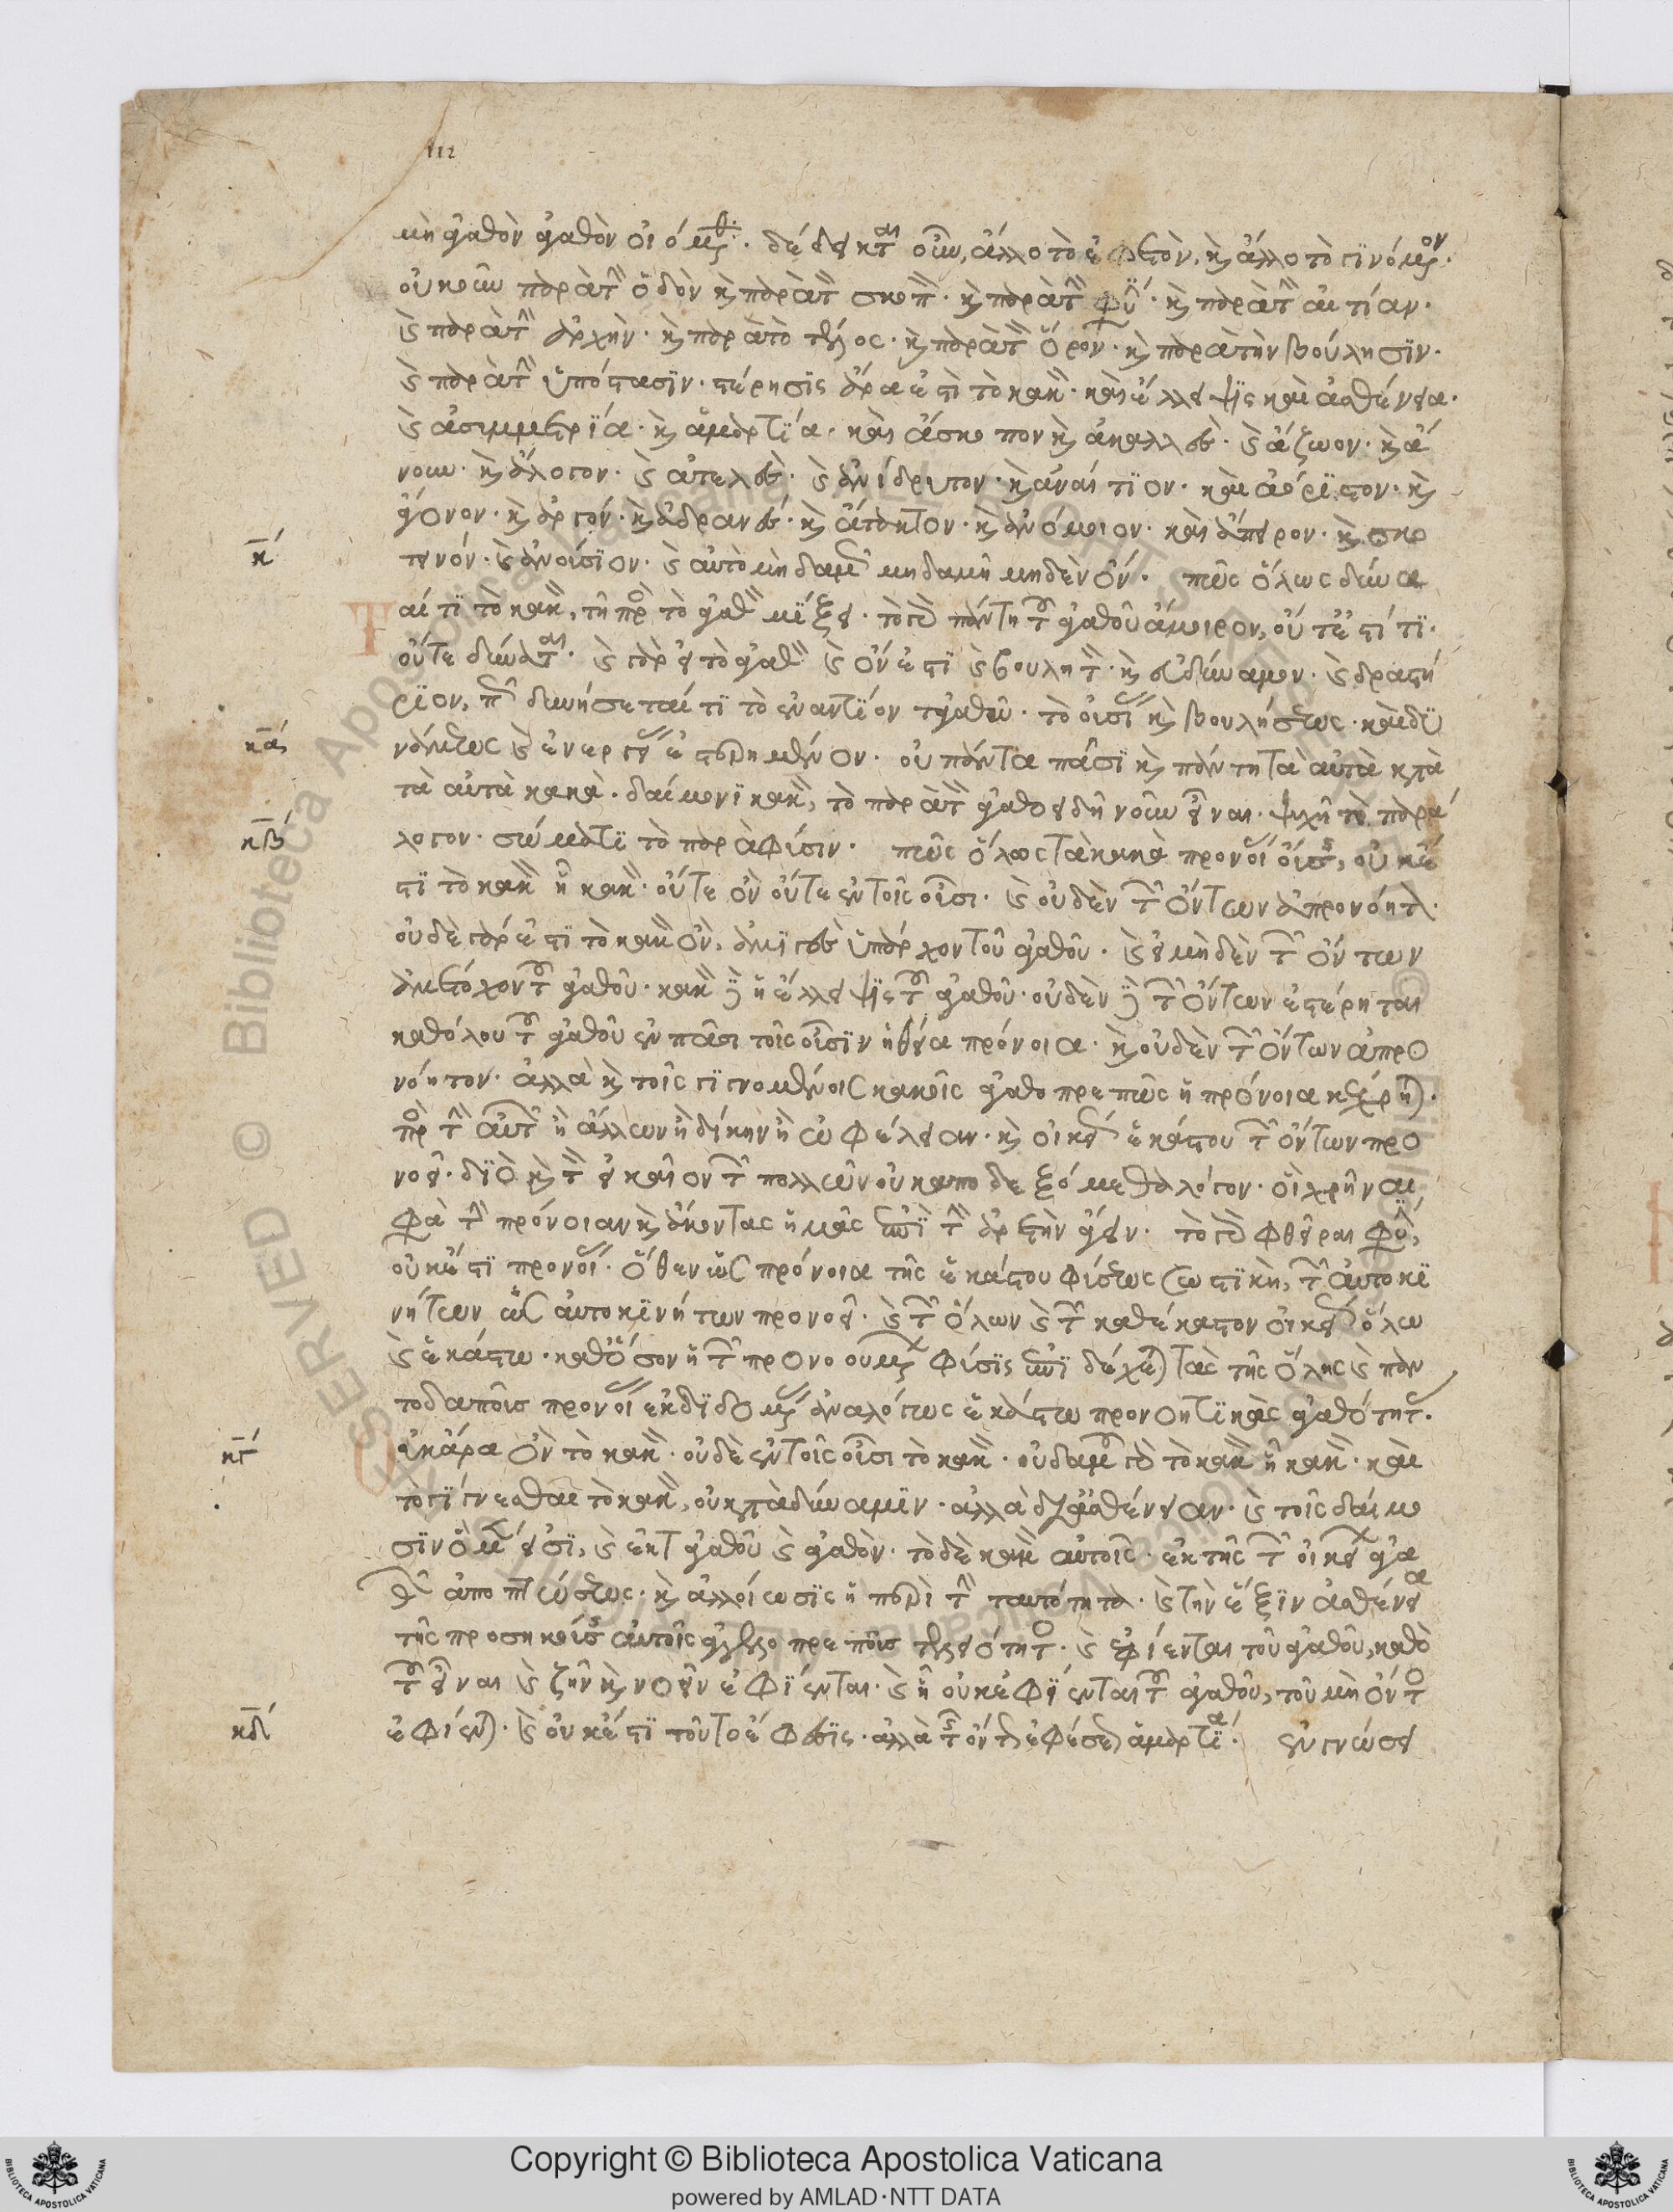 112
μὴ ἀγαθὸν ἀγαθὸν οἰόμεθα. δέδεικται οὖν, ἄλλο τὸ ἐφετὸν, καὶ ἄλλο τὸ γινόμενον.
οὐκοῦν παρὰ τὴν ὁδὸν καὶ παρὰ τὸν σκοπὸν. καὶ παρὰ τὴν φύσιν. καὶ παρὰ τὴν αἰτίαν.
καὶ παρὰ τὴν ἀρχὴν. καὶ παρὰ τὸ τέλος. καὶ παρὰ τὸν ὅρον. καὶ παρὰ τὴν βούλησιν.
καὶ παρὰ τὴν ὑπόστασιν. στέρησις ἄρα ἐστὶ τὸ κακὸν. καὶ ἔλλειψις καὶ ἀσθένεια.
καὶ ἀσυμμετρία. καὶ ἁμαρτία. καὶ ἄσκοπον καὶ ἀκαλλὲς. καὶ ἄζωον. καὶ ἄ
νουν. καὶ ἄλογον. καὶ ἀτελὲς. καὶ ἀνίδρυτον. καὶ ἀναίτιον. καὶ ἀόριστον. καὶ
ἄγονον. καὶ ἀργόν. καὶ ἀδρανές. καὶ ἄτακτον. καὶ ἀνόμοιον. καὶ ἄπειρον. καὶ σκο
κ τεινόν. καὶ ἀνούσιον. καὶ αὐτὸ μηδαμῶς μηδαμῆ μηδὲν ὄν. πῶς ὅλως δύνα
ταί τι τὸ κακὸν, τῆ πρὸς τὸ ἀγαθὸν μίξει. τὸ γὰρ πάντη τοῦ ἀγαθοῦ ἄμοιρον, οὔτέ ἐστί τι.
οὔτε δύναται. καὶ γὰρ εἰ τὸ ἀγαθὸν καὶ ὄν ἐστι καὶ βουλητὸν. καὶ δυνάμον. καὶ δραστή
ριον, πῶς δυνήσεταί τι τὸ ἐναντίον τἀγαθοῦ. τὸ οὐσίας καὶ βουλήσεως. καὶ δυ
κα νάμεως καὶ ἐνεργείας ἐστερημένον. οὐ πάντα πᾶσι καὶ πάντη τὰ αὐτὰ κατὰ
τὰ αὐτὰ κακὰ. δαίμονι κακὸν, τὸ παρὰ τὸν ἀγαθοειδῆ νοῦν εἶναι. ψυχῆ τὸ παρὰ
κβ λόγον. σώματι τὸ παρὰ φύσιν. πῶς ὅλως τὰ κακὰ προνοίας οὔσης, οὐκ ἔ
στι τὸ κακὸν ἧ κακὸν. οὔτε ὂν οὔτε ἐν τοῖς οὖσι. καὶ οὐδὲν τῶν ὄντων ἀπρονόητον.
οὐδὲ γάρ ἐστι τὸ κακὸν ὂν, ἀμιγὲς ὑπάρχον τοῦ ἀγαθοῦ. καὶ εἰ μηδὲν τῶν ὄντων
ἀμέτοχον τοῦ ἀγαθοῦ. κακὸν δὲ ἡ ἔλλειψις τοῦ ἀγαθοῦ. οὐδὲν δὲ τῶν ὄντων ἐστέρηται
καθόλου τοῦ ἀγαθοῦ ἐν πᾶσι τοῖς οὖσιν ἡ θεία πρόνοια. καὶ οὐδὲν τῶν ὄντων ἀπρο
νόητον. ἀλλὰ καὶ τοῖς γινομένοις κακοῖς ἀγαθοπρεπῶς ἡ πρόνοια κέχρηται.
πρὸς τὴν αὐτῶν ἢ ἄλλων ἢ δίκην ἢ ὠφέλειαν. καὶ οἰκείως ἑκάστου τῶν ὄντων προ
νοεῖ. διὸ καὶ τὸν εἰκαῖον τῶν πολλῶν οὐκ ἀποδεξόμεθα λόγον. οἳ χρῆναι
φασὶ τὴν πρόνοιαν καὶ ἄκοντας ἡμᾶς ἐπὶ τὴν ἀρετὴν ἄγειν. τὸ γὰρ φθεῖραι φύσιν,
οὐκ ἔστι προνοίας. ὅθεν ὡς πρόνοια τῆς ἑκάστου φύσεως σωστικὴ, τῶν αὐτοκι
νήτων ὡς αὐτοκινήτων προνοεῖ. καὶ τῶν ὅλων καὶ τῶν καθέκαστον οἰκείως ὅλω
καὶ ἑκάστω. καθόσον ἡ τῶν προνοουμένων φύσις ἐπιδέχεται τὰς τῆς ὅλης καὶ παν
τοδαποῦς προνοίας ἐκδιδομένας ἀναλόγως ἑκάστω προνοητικὰς ἀγαθότητας.
κγ Οὐκ ἄρα ὂν τὸ κακὸν. οὐδὲ ἐν τοῖς οὖσι τὸ κακὸν. οὐδαμοῦ γὰρ τὸ κακὸν ἧ κακὸν. καὶ
τὸ γίγνεσθαι τὸ κακὸν, οὐ κατὰ δύναμιν. ἀλλὰ δι' ἀσθένειαν. καὶ τοῖς δαίμο
σιν ὃ μέν εἰσι, καὶ ἐκ τἀγαθοῦ καὶ ἀγαθὸν. τὸ δὲ κακὸν αὐτοῖς. ἐκ τῆς τῶν οἰκείων ἀγα
θῶν ἀποπτώσεως. καὶ ἀλλοίωσις ἡ περὶ τὴν ταυτότητα. καὶ τὴν ἕξιν ἀσθένεια
τῆς προσηκούσης αὐτοῖς ἀγγελοπρεποῦς τελειότητος. καὶ ἐφίενται τοῦ ἀγαθοῦ, καθὸ
τοῦ εἶναι καὶ ζῆν καὶ νοεῖν ἐφίενται. καὶ ἧ οὐκ ἐφίενται τοῦ ἀγαθοῦ, τοῦ μὴ ὄντος
κδ ἐφίενται. καὶ οὐκ ἔστι τοῦτο ἔφεσις. ἀλλὰ τῆς ὄντως ἐφέσεως ἁμαρτία. ἐν γνώσει